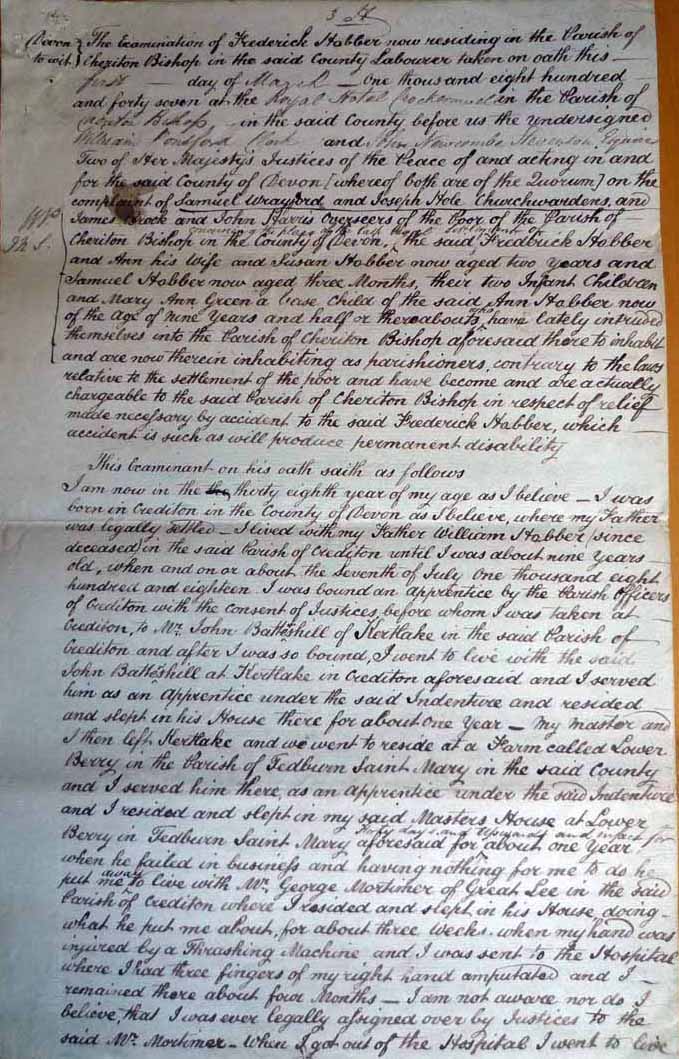 Devon
to wit
The Examination of Frederick Hobber now residing in the Parish of
Cheriton Bishop in the said County Labourer taken on oath this
first day of March one thousand eight hundred
and forty seven at the Royal Hotel Crockernwell in the Parish of
Cheriton Bishop in the said County before us the undersigned
William Ponsford Clerk and John Newcombe Stevenson Esquire
Two of Her Majestys Justices of the Peace of and acting in and
for the said County of Devon [whereof both are of the Quorum] on the
complaint of Samuel Wrayford and Joseph Hole Churchwardens, and
James Brock and John Harris Overseers of the Poor of the Parish of
concerning the place of the last legal settlement of
Cheriton Bishop in the County of Devon, the said Frederick Hobber
and Ann his Wife and Susan Hobber now aged two years and
Samuel Hobber now aged three Months, their two Infant Children
and Mary Ann Green a base child of the said Ann Hobber now
of the age of nine years and half or thereabouts who have lately intruded
themselves into the Parish of Cheriton Bishop aforesaid there to inhabit
and are now therein inhabiting as parishioners, contrary to the laws
relative to the settlement of the poor and have become and are actually
chargeable to the said Parish of Cheriton Bishop in respect of relief
made necessary by accident to the said Frederick Hobber, which
accident is such as will produce permanent disability
This Examinant on his oath saith as follows
I am now in the the thirty eighth year of my age as I believe – I was
born in Crediton in the County of Devon as I believe, where my Father
was legally settled – I lived with my Father William Hobber (since
deceased) in the said Parish of Crediton until I was about nine years
old, when and on or about the seventh of July One thousand eight
hundred and eighteen I was bound an apprentice by the Parish Officers
of Crediton with the consent of Justices, before whom I was taken at
Crediton, to Mr. John Batteshill of Kertlake in the said Parish of
Crediton and after I was so bound, I went to live with the said
John Batteshill at Kertlake in Crediton aforesaid and I served
him as an Apprentice under the said Indenture and resided
and slept in his House there for about one year – my master and
I then left Kertlake and we went to reside at a Farm called Lower
Berry in the Parish of Tedburn Saint Mary in the said County
and I served him there as an apprentice under the said Indenture
and I resided and slept in my said Masters House at Lower
forty days and upwards and in fact for
Berry in Tedburn Saint Mary aforesaid for about one year
when he failed in business and having nothing for me to do he
put me away to live with Mr. George Mortimer of Great Lee in the said
Parish of Crediton where I resided and slept in his House, doing
what he put me about, for about three weeks, when my hand was
injured by a Thrashing Machine and I was sent to the Hospital
where I had three fingers of my right hand amputated and I
remained there about four Months – I am not aware nor do I
believe, that I was ever legally assigned over by Justices to the
said Mr. Mortimer – when I got out of the Hospital I went to live